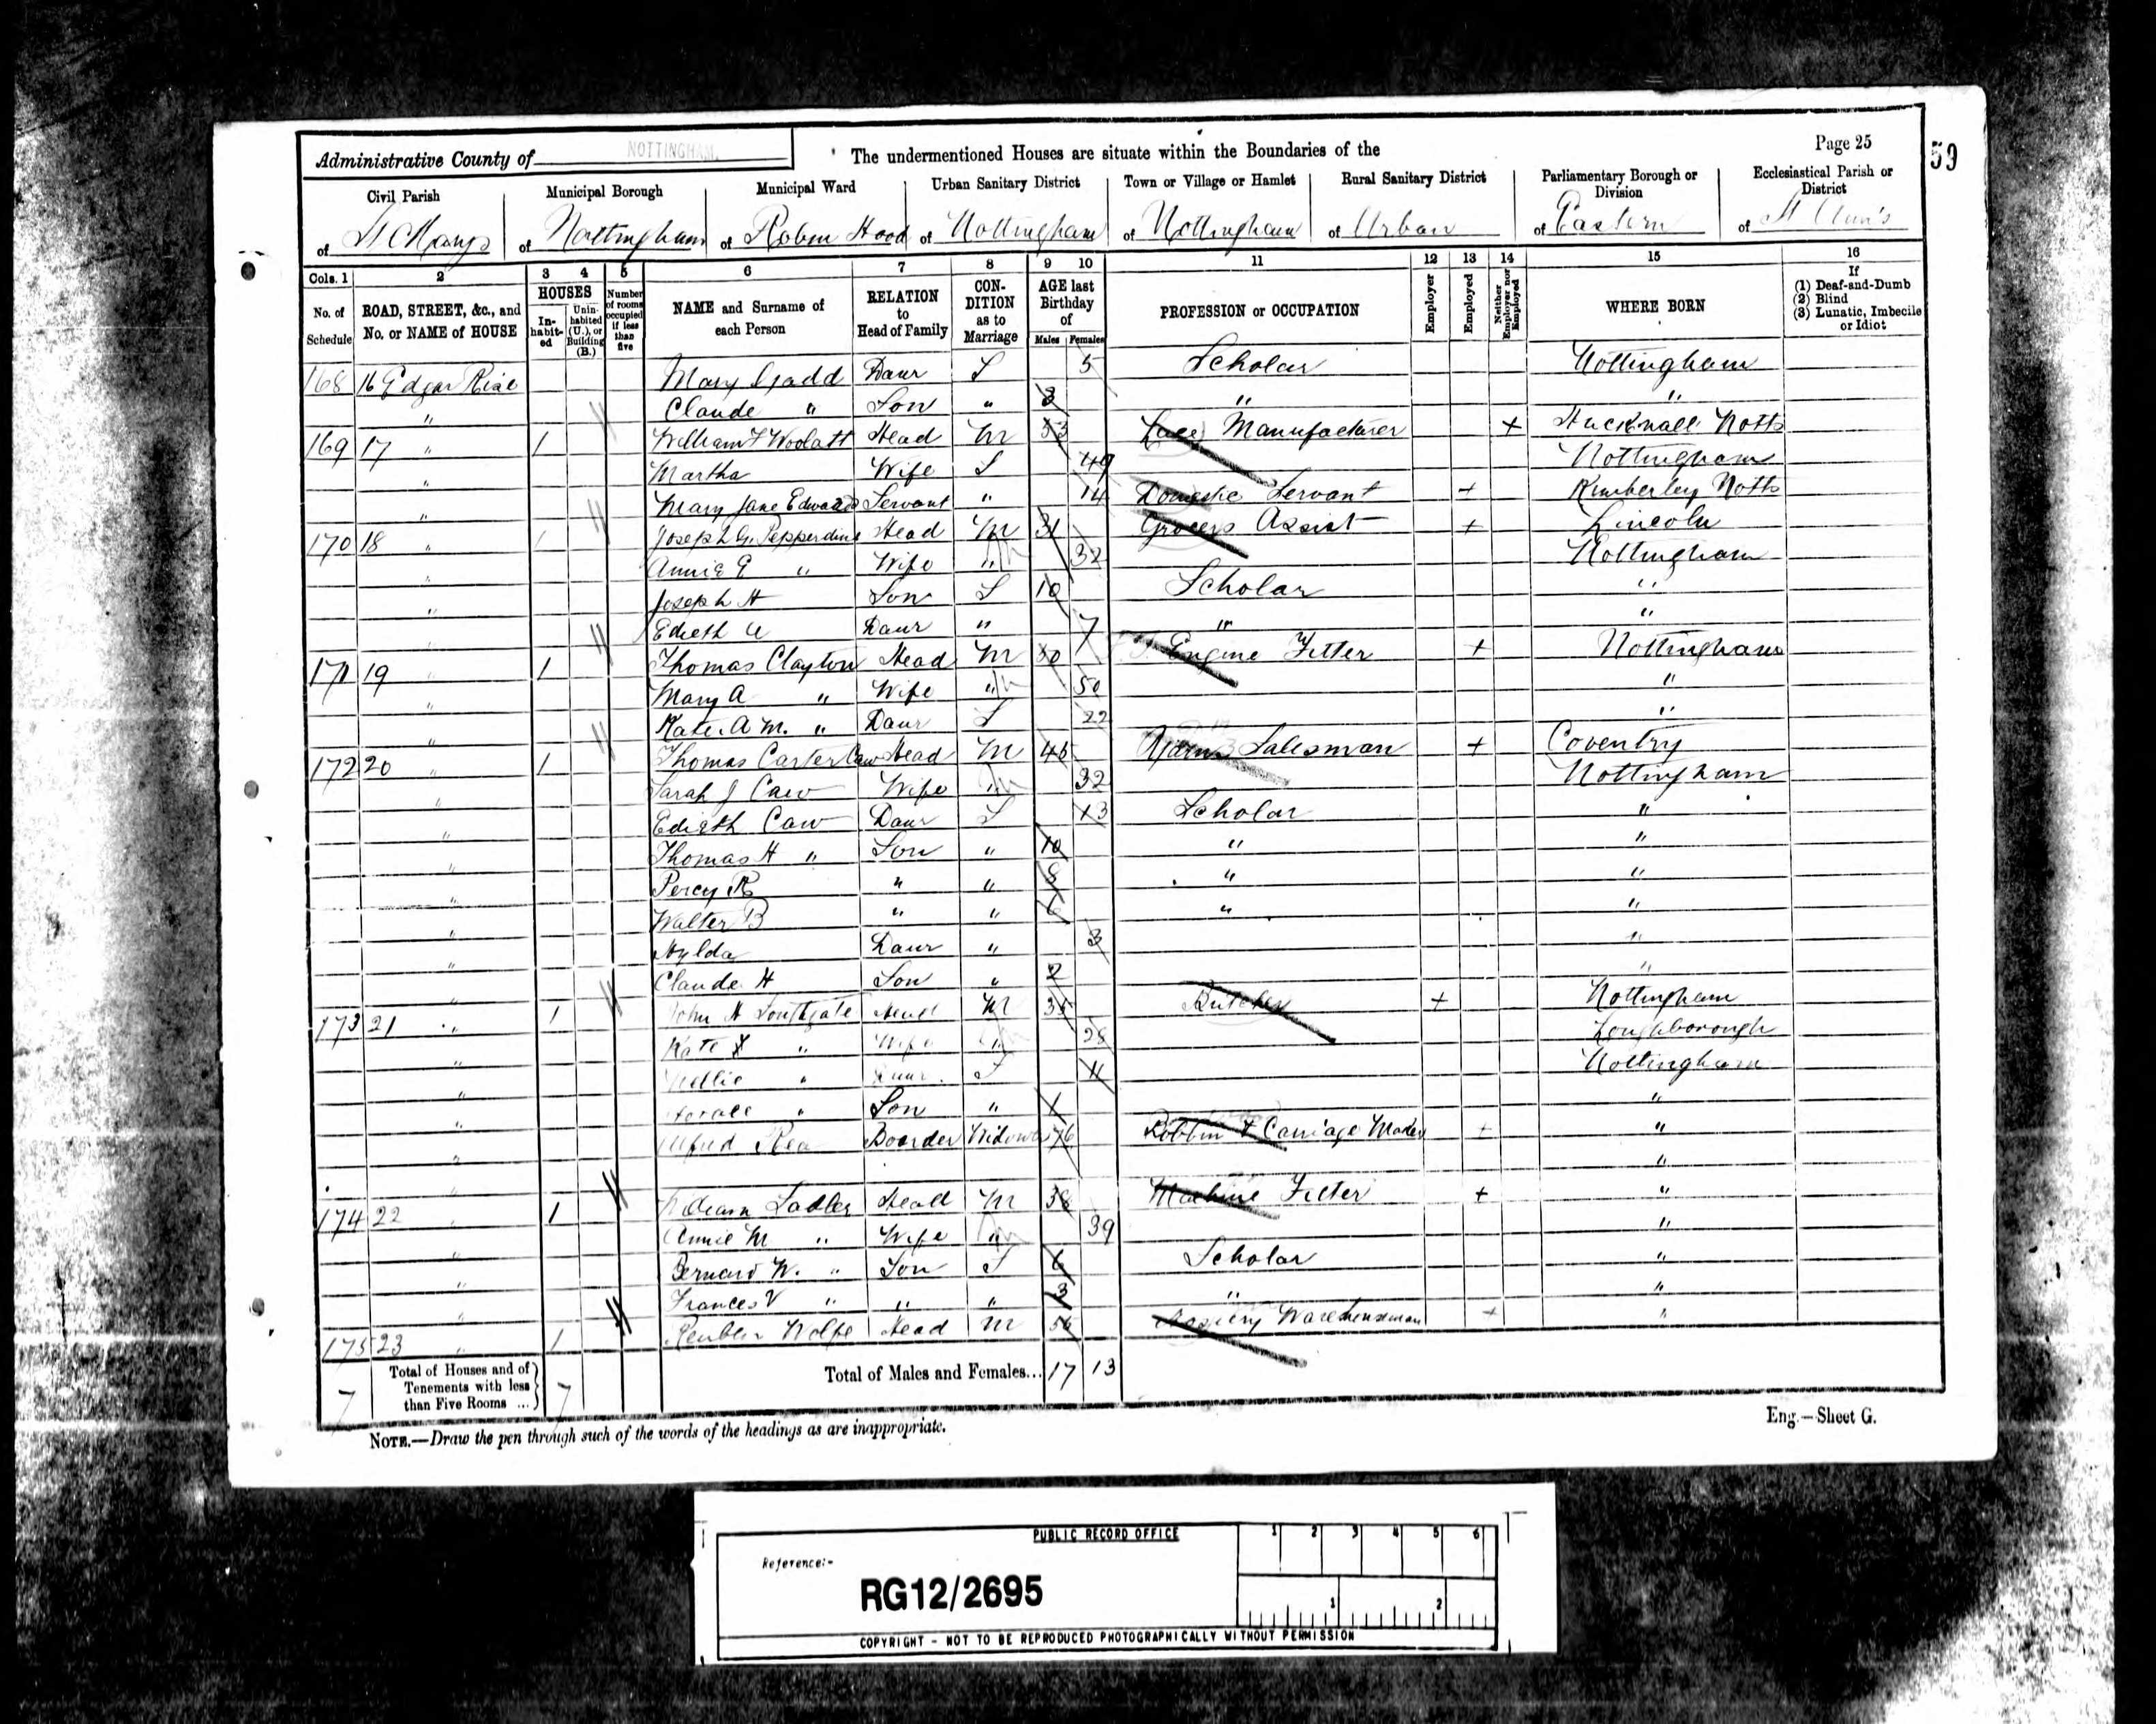 Page 25
59
Administrative County of NOTTINGHAM. The undermentioned Houses are situate within the Boundaries of the
Civil Parish Municipal Borough Municipal Ward Urban Sanitary District Town or Village or Hamlet Rural Sanitary District Parliamentary Borough or Division Ecclesiastical Parish or District
of St Marys of Nottingham of Robin Hood of Nottingham of Nottingham of Urban of Eastern of St Ann's
Cols. 1 2 3 4 5 6 7 8 9 10 11 12 13 14 15 16
No. of Schedule ROAD, STREET, &c., and No. or NAME of HOUSE HOUSES In-habit-ed Unin-habited (U.), or Building (B.) Number of rooms occupied if less than five NAME and Surname of each Person RELATION to Head of Family CON-DITION as to Marriage AGE last Birthday of Males Females PROFESSION or OCCUPATION Employer Employed Neither Employer nor Employed WHERE BORN If (1) Deaf-and-Dumb (2) Blind (3) Lunatic, Imbecile or Idiot
168 16 Edgar Rise Mary Gadd Daur S 5 Scholar Nottingham
" Claude " Son " 3 " "
169 17 " 1 William F Woolatt Head M 53 Lace Manufacturer + Hucknall Notts
" Martha Wife S 49 Nottingham
" Mary Jane Edwards Servant " 14 Domestic Servant + Kimberley Notts
170 18 " 1 Joseph G. Pepperdine Head M 31 Grocers Assist + Lincoln
" Annie E " Wife " 32 Nottingham
" Joseph H Son S 10 Scholar "
" Edieth A Daur " 7 " "
171 19 " 1 Thomas Clayton Head M 50 Engine Fitter + Nottingham
" Mary A " Wife " 50 "
" Kate A M. " Daur S 22 "
172 20 " 1 Thomas Carter Caw Head M 46 Yarn Salesman + Coventry
" Sarah J Caw Wife " 32 Nottingham
" Edieth Caw Daur S 13 Scholar "
" Thomas H " Son " 10 " "
" Percy R " " 8 " "
" Walter B " " 6 " "
" Hylda Daur " 3 "
" Claude H Son " 2 "
173 21 " 1 John H Southgate Head M 35 Butcher + Nottingham
" Kate " Wife " 38 Loughborough
" Nellie " Daur. S 11 Nottingham
" Horace " Son " 1 "
" Alfred Rea Boarder Widower 76 Bobbin & Carriage Maker + "
" "
174 22 " 1 William Sadler Head M 38 Machine Fitter + "
" Annie M " Wife " 39 "
" Bernard W. " Son S 6 Scholar "
" Frances V " " " 3 " "
175 23 " 1 Reuben Wolfe Head M 56 Hosiery Warehouseman + "
7 Total of Houses and of Tenements with less than Five Rooms ... 7 Total of Males and Females... 17 13
NOTE.—Draw the pen through such of the words of the headings as are inappropriate.
Eng.—Sheet G.
PUBLIC RECORD OFFICE
1 2 3 4 5 6
Reference:-
RG12/2695
1 2
COPYRIGHT - NOT TO BE REPRODUCED PHOTOGRAPHICALLY WITHOUT PERMISSION